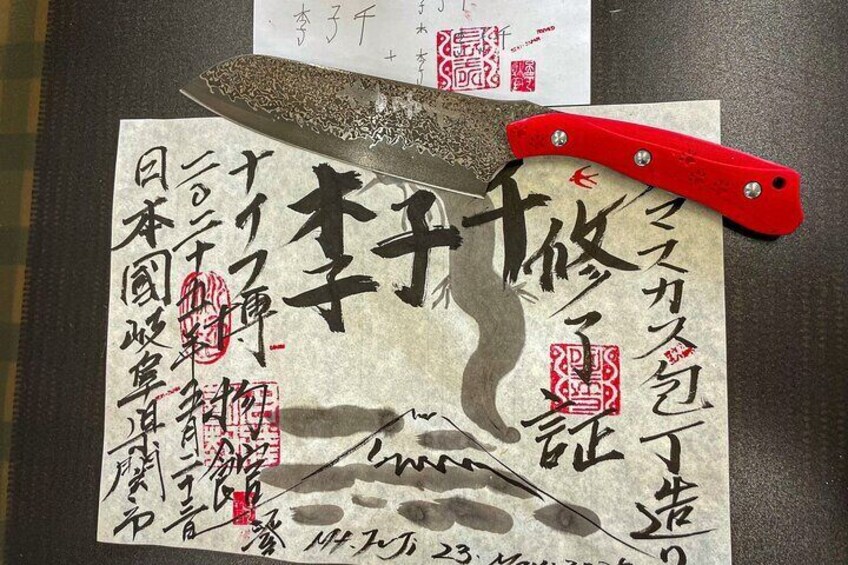 李子千
マスカス包丁造り
修了証
李子千
ナイフ博物館
二〇二十五年五月二十三日
日本國岐阜県関市
Mt. FuJi 23. May